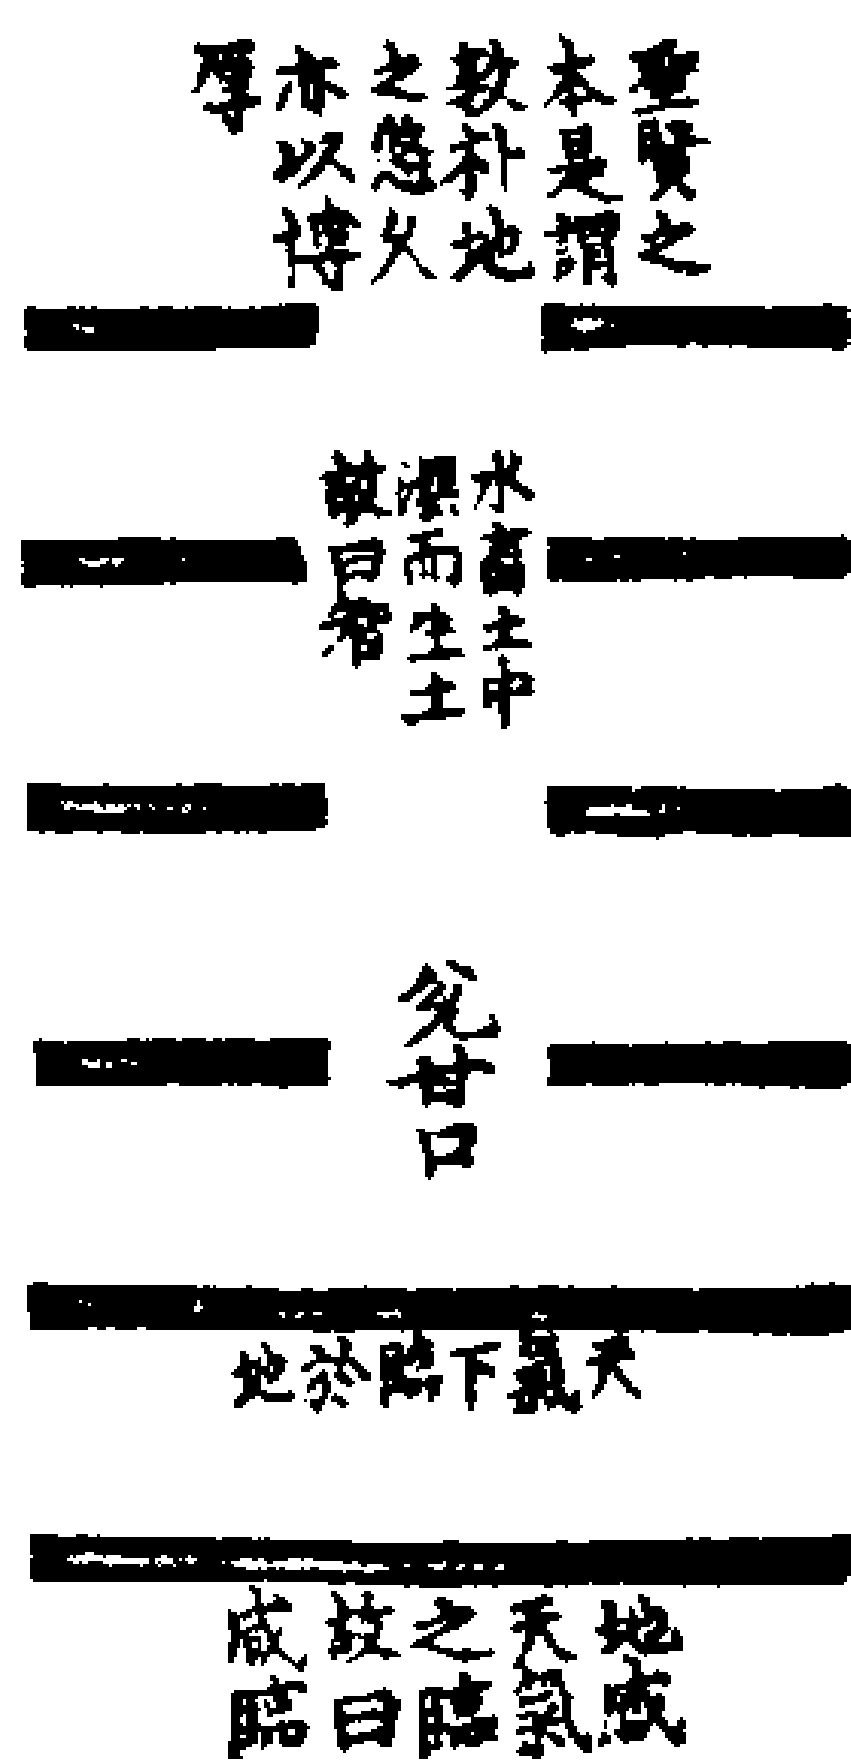 聖賢之
本是謂
敦朴地
之悠久
亦以博
厚
水畜土中
濕而生土
故曰智
兌甘口
天氣下臨於地
地感
天氣
之臨
故曰
咸臨